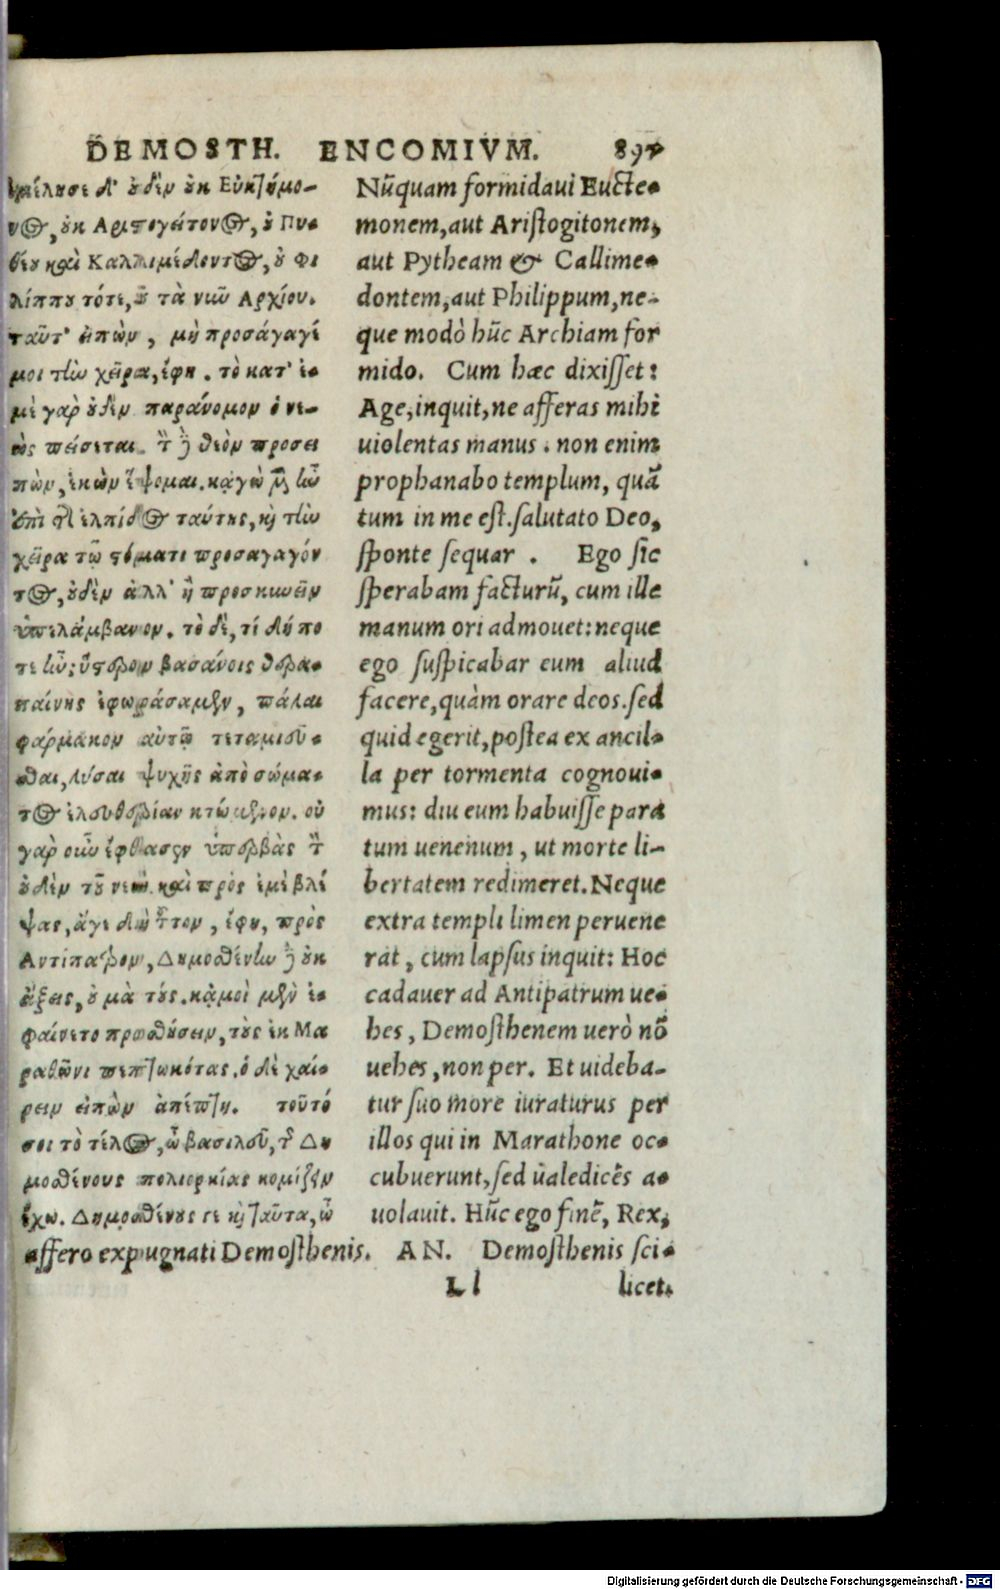 DEMOSTH. ENCOMIVM. 897
ἠπείλησε δ' οὐδὲν οὐκ Εὐκτήμο-
νος, οὐκ Αριστογείτονος, οὐ Πυ-
θέου καὶ Καλλιμέδοντος, οὐ Φι
λίππου τότε, οὐ τὰ νῦν Αρχίου.
ταῦτ' εἰπὼν, μὴ προσάγαγέ
μοι τὴν χεῖρα, ἔφη. τὸ κατ' ἐ-
μὲ γαρ οὐδὲν παράνομον ὁ νε-
ὼς πείσεται. τὸν δὲ θεὸν προσει
πὼν, ἑκὼν ἕψομαι. κἀγὼ μὲν ἦν
ἐπὶ τῆς ἐλπίδος ταύτης, καὶ τὴν
χεῖρα τῷ στόματι προσαγαγόν
τος, οὐδὲν ἀλλ' ἢ προσκυνεῖν
ὑπελάμβανον. τὸ δὲ, τί δή πο
τε ἦν; ὕστερον βασάνοις θερα-
παίνης ἐφωράσαμεν, πάλαι
φαρμακον αὐτῷ τεταμιεῦ-
σθαι, λύσαι ψυχῆς ἀπὸ σώμα-
τος ἐλευθερίαν κτώμενον. οὐ
γαρ οὖν ἔφθασεν ὑπερβὰς τὸν
οὐδὸν τοῦ νεὼ. καὶ πρὸς ἐμὲ βλέ
ψας, ἄγε δὴ τοῦτον, ἔφη, πρὸς
Αντίπατρον, Δημοσθένην δὲ οὐκ
ἄξεις, οὐ μὰ τούς. κᾀμοὶ μὲν ἐ-
φαίνετο προσθήσειν, τοὺς ἐκ Μα
ραθῶνι πεπτωκότας. ὁ δὲ χαί-
ρειν εἰπὼν ἀπέπτη. τοῦτό
σοι τὸ τέλος, ὦ βασιλεῦ, τῆς Δη
μοσθένους πολιορκίας κομίζειν
ἔχω. Δημοσθένους γε καὶ ταῦτα, ὦ
Nũquam formidaui Eucte-
monem, aut Aristogitonem,
aut Pytheam & Callime-
dontem, aut Philippum, ne-
que modò hũc Archiam for
mido. Cum hæc dixisset:
Age, inquit, ne afferas mihi
uiolentas manus. non enim
prophanabo templum, quã
tum in me est. salutato Deo,
sponte sequar. Ego sic
sperabam facturũ, cum ille
manum ori admouet: neque
ego suspicabar eum aliud
facere, quàm orare deos. sed
quid egerit, postea ex ancil-
la per tormenta cognoui-
mus: diu eum habuisse para
tum uenenum, ut morte li-
bertatem redimeret. Neque
extra templi limen peruene
rat, cum lapsus inquit: Hoc
cadauer ad Antipatrum ue-
hes, Demosthenem uerò nõ
uehes, non per. Et uideba-
tur suo more iuraturus per
illos qui in Marathone oc-
cubuerunt, sed ualedicẽs a-
uolauit. Hũc ego finẽ, Rex,
affero expugnati Demosthenis. AN. Demosthenis sci-
Ll licet.
Digitalisierung gefördert durch die Deutsche Forschungsgemeinschaft - DFG